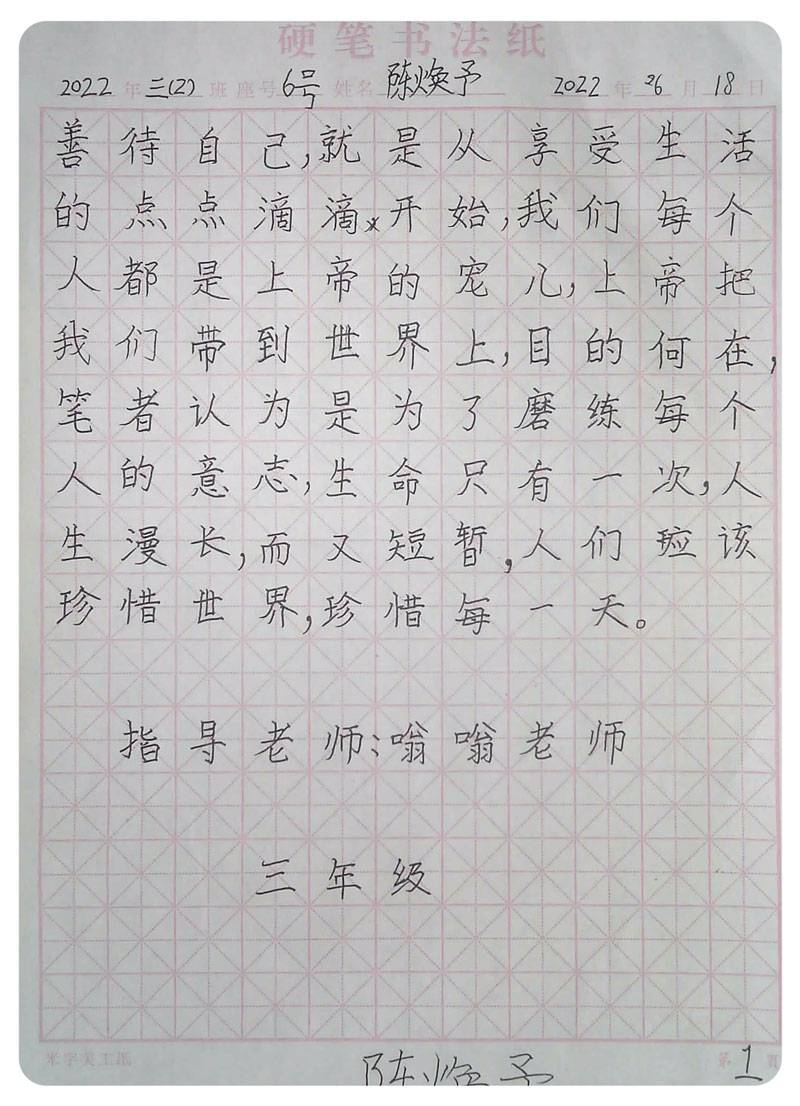 硬笔书法纸
2022年三(2)班座号6号姓名陈焕予 2022年26月18日
善待自己,就是从享受生活
的点点滴滴开始,我们每个
人都是上帝的宠儿,上帝把
我们带到世界上,目的何在,
笔者认为是为了磨练每个
人的意志,生命只有一次,人
生漫长,而又短暂,人们应该
珍惜世界,珍惜每一天。
指导老师:嗡嗡老师
三年级
米字美工纸 第1页
陈焕予